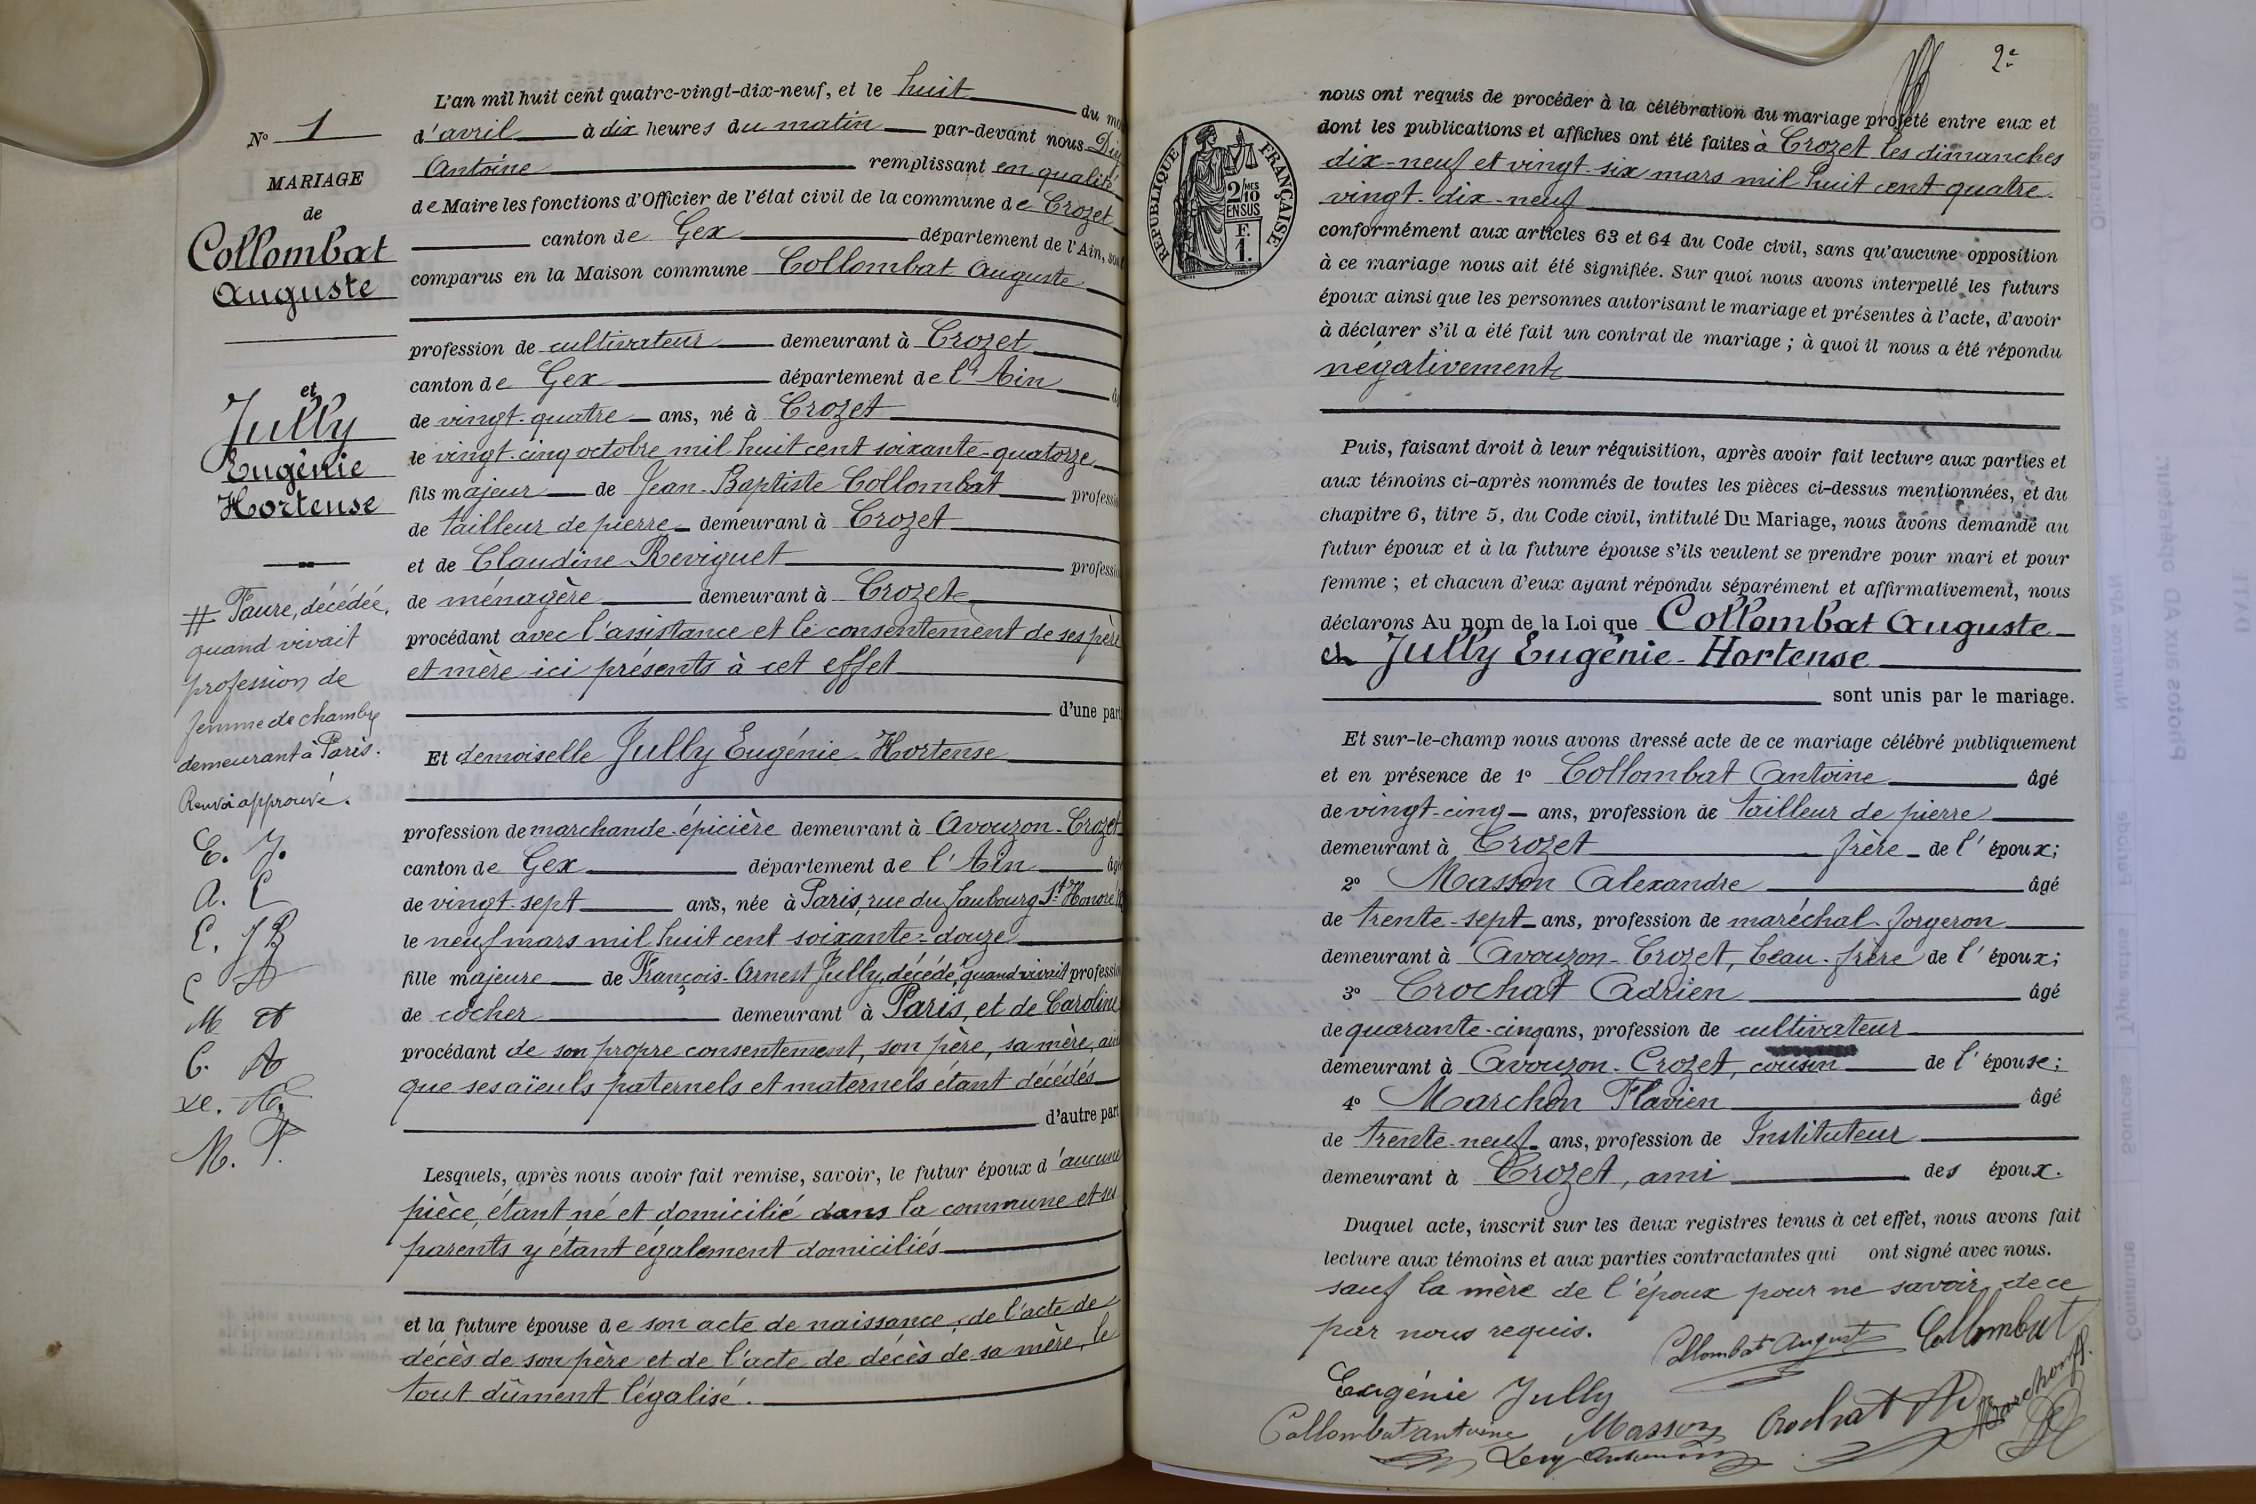 L'an mil huit cent quatre-vingt-dix-neuf, et le huit du
d'avril à dix heures du matin par-devant nous
Antoine remplissant en qualité
de Maire les fonctions d'Officier de l'état civil de la commune de Crozet
canton de Gex département de l'Ain,
comparus en la Maison commune Collombat Auguste
profession de cultivateur demeurant à Crozet
canton de Gex département de l'Ain
de vingt-quatre ans, né à Crozet
le vingt-cinq octobre mil huit cent soixante-quatorze
fils majeur de Jean-Baptiste Collombat
de tailleur de pierre demeurant à Crozet
et de Claudine Reviguet
de ménagère demeurant à Crozet
procédant avec l'assistance et le consentement de ses père
et mère ici présents à cet effet
d'une part
Et demoiselle Jully Eugénie-Hortense
profession de marchande-épicière demeurant à Avouzon-Crozet
canton de Gex département de l'Ain
de vingt-sept ans, née à Paris, rue du faubourg St Honoré
le neuf mars mil huit cent soixante-douze
fille majeure de François-Arnest Jully, décédé, quand vivait
de cocher demeurant à Paris, et de Caroline
procédant de son propre consentement, son père, sa mère,
que ses aïeuls paternels et maternels étant décédés
d'autre part
Lesquels, après nous avoir fait remise, savoir, le futur époux d'aucune
pièce, étant né et domicilié dans la commune et ses
parents y étant également domiciliés
et la future épouse de son acte de naissance, de l'acte de
décès de son père et de l'acte de décès de sa mère, le
tout dûment légalisé.
N° 1
MARIAGE
de
Collombat
Auguste
et
Jully
Eugénie
Hortense
# Faure, décédée,
quand vivait
profession de
femme de chambre
demeurant à Paris.
Renvoi approuvé.
E. J.
A. C
C. JB
C A
M A
C. A
M. F.
2e
nous ont requis de procéder à la célébration du mariage projeté entre eux et
dont les publications et affiches ont été faites à Crozet les dimanches
dix-neuf et vingt-six mars mil huit cent quatre-
vingt-dix-neuf
RÉPUBLIQUE FRANÇAISE
2/10 MES
EN SUS
F.
1.
conformément aux articles 63 et 64 du Code civil, sans qu'aucune opposition
à ce mariage nous ait été signifiée. Sur quoi nous avons interpellé les futurs
époux ainsi que les personnes autorisant le mariage et présentes à l'acte, d'avoir
à déclarer s'il a été fait un contrat de mariage ; à quoi il nous a été répondu
négativement
Puis, faisant droit à leur réquisition, après avoir fait lecture aux parties et
aux témoins ci-après nommés de toutes les pièces ci-dessus mentionnées, et du
chapitre 6, titre 5, du Code civil, intitulé Du Mariage, nous avons demandé au
futur époux et à la future épouse s'ils veulent se prendre pour mari et pour
femme ; et chacun d'eux ayant répondu séparément et affirmativement, nous
déclarons Au nom de la Loi que Collombat Auguste
et Jully Eugénie-Hortense
sont unis par le mariage.
Et sur-le-champ nous avons dressé acte de ce mariage célébré publiquement
et en présence de 1° Collombat Antoine âgé
de vingt-cinq ans, profession de tailleur de pierre
demeurant à Crozet frère de l'époux;
2° Masson Alexandre âgé
de trente-sept ans, profession de maréchal-forgeron
demeurant à Avouzon-Crozet, beau-frère de l'époux;
3° Crochat Adrien âgé
de quarante-cinq ans, profession de cultivateur
demeurant à Avouzon-Crozet, cousin de l'épouse;
4° Marchon Flavien âgé
de trente-neuf ans, profession de Instituteur
demeurant à Crozet, ami des époux.
Duquel acte, inscrit sur les deux registres tenus à cet effet, nous avons fait
lecture aux témoins et aux parties contractantes qui ont signé avec nous.
sauf la mère de l'époux pour ne savoir de ce
par nous requis.
Collombat August Collombat
Eugénie Jully
Marchon F.
Collombat antoine Masson Crochat Ad